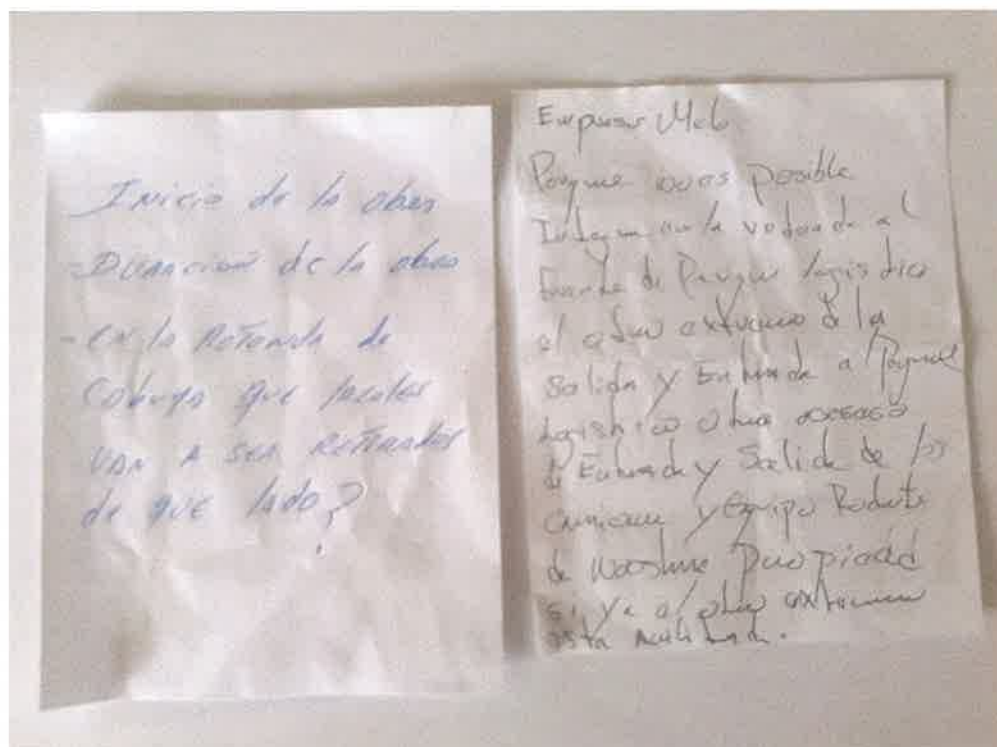 Inicio de la obra
- Duracion de la obra
- en la Rotonda de
que locales
van a ser Retirados
de que lado?
Empresa Melo
Porque no es posible
la rotonda al
frente de Parque logistico
al otro extremo de la
Salida y Entrada a Parque
Logistico otro acceso
de Entrada y Salida de los
y Equipo Rodante
de Nuestra Propiedad
si ya al otro extremo
esta